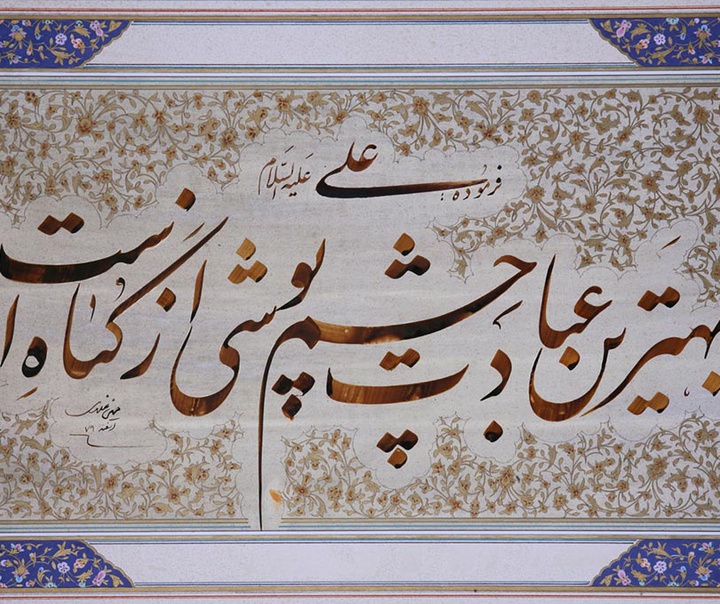 فرموده: علی عَلَیهِ السَّلام
بهترین عبادت چشم پوشی از گناهِ است
اسفند ۷۱